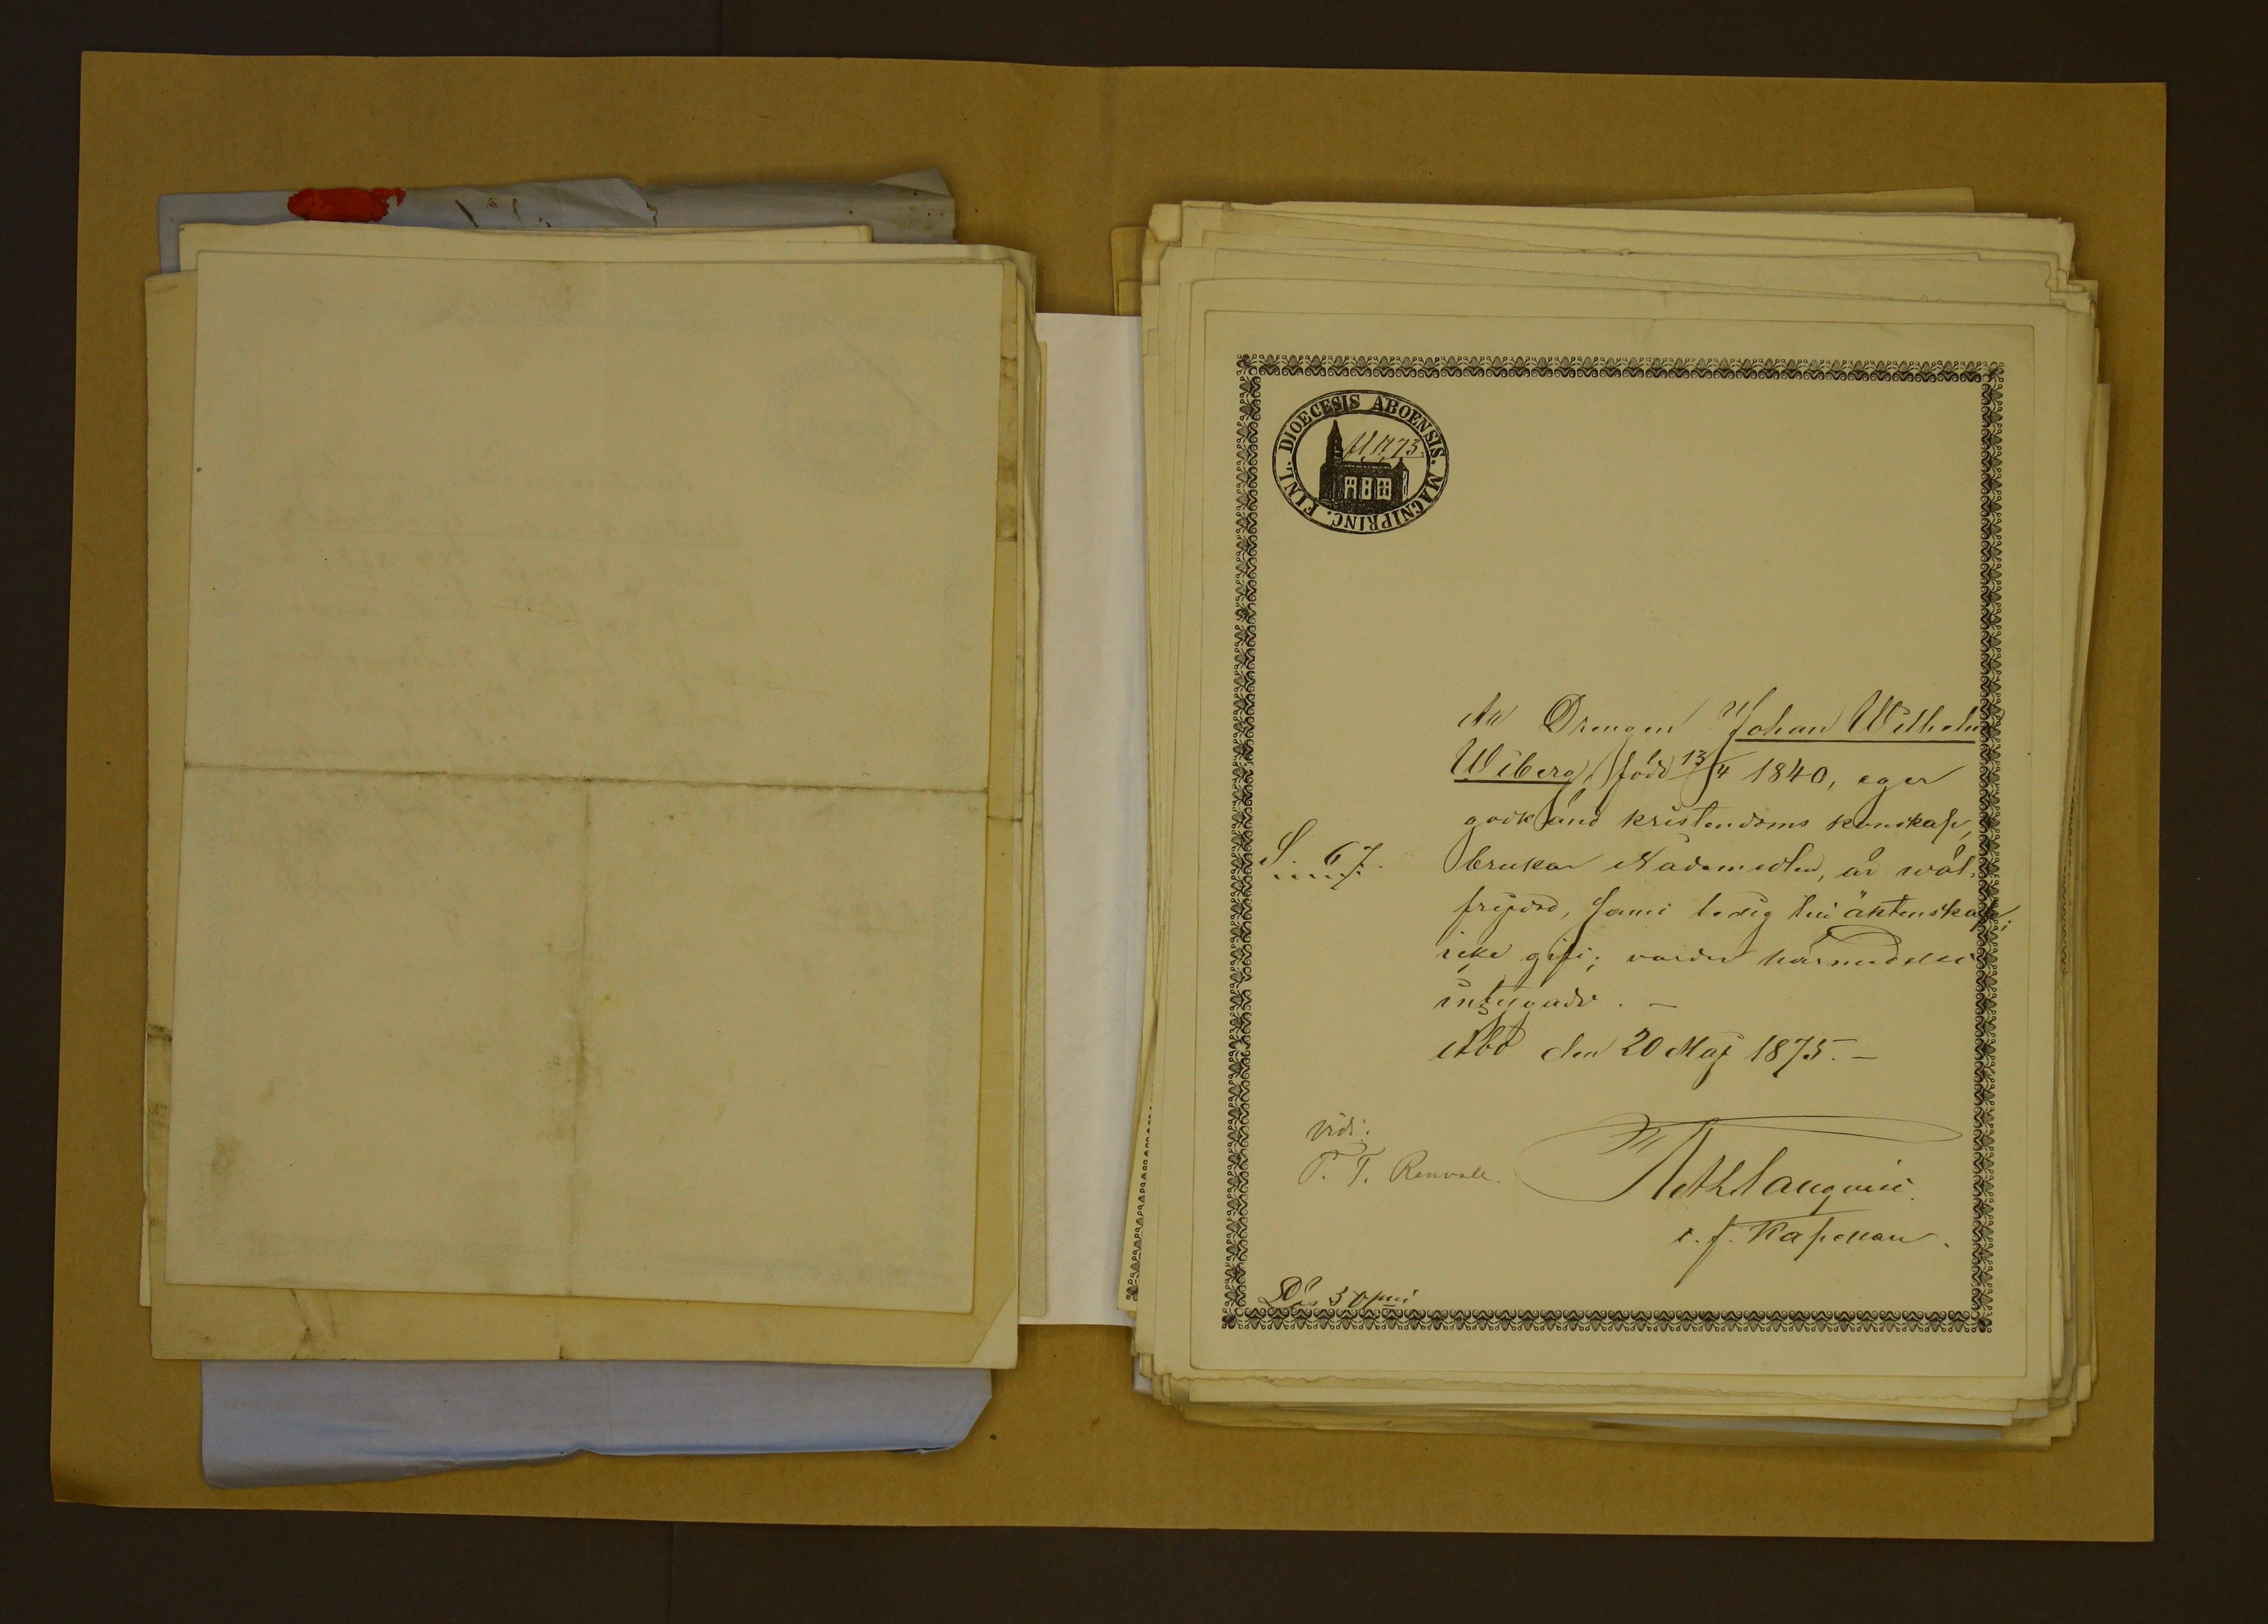 DIOECESIS ABOENSIS. MAGNIPRINC. FINL.
Att Drengen Johan Wilhelm
Wiberg, född 13/4 1840, eger
godkänd kristendoms kunskap,
S. 67. brukar Nådemedlen, är wäl-
frejdad, samt ledig till äktenskap;
icke gift; varder härmedelst
intygadt. –
Åbo den 20 Maj 1875. –
Vidi:
T. T. Renvall.
t. f. Kapellan.
Lös 50 pni